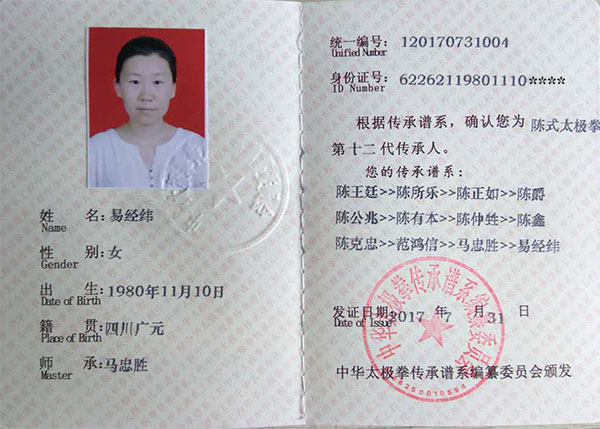 姓 名:易经纬
Name
性 别:女
Gender
出 生:1980年11月10日
Date of Birth
籍 贯:四川广元
Place of Birth
师 承:马忠胜
Master
统一编号: 120170731004
Unified Number
身份证号: 62262119801110****
ID Number
根据传承谱系，确认您为 陈式太极拳
第十二代传承人。
您的传承谱系:
陈王廷>>陈所乐>>陈正如>>陈爵
陈公兆>>陈有本>>陈仲甡>>陈鑫
陈克忠>>范鸿信>>马忠胜>>易经纬
发证日期:2017 年 7 月 31 日
Date of Issue
中华太极拳传承谱系编纂委员会
中华太极拳传承谱系编纂委员会颁发